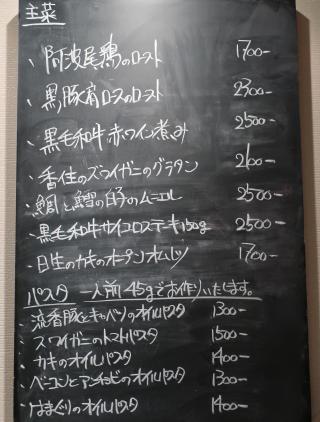 主菜
、阿波尾鶏のロースト 1700-
、黒豚肩ロースのロースト 2300-
、黒毛和牛赤ワイン煮込み 2500-
・香住のズワイガニのグラタン 2100-
・鯛と鱈の白子のムニエル 2500-
・黒毛和牛サイコロステーキ150g 2500-
・日生のカキのオープンオムレツ 1700-
パスタ 一人前45gでお作りいたします。
・流香豚とキャベツのオイルパスタ 1300-
・ズワイガニのトマトパスタ 1500-
・カキのオイルパスタ 1400-
・ベーコンとアンチョビのオイルパスタ 1300-
・はまぐりのオイルパスタ 1400-